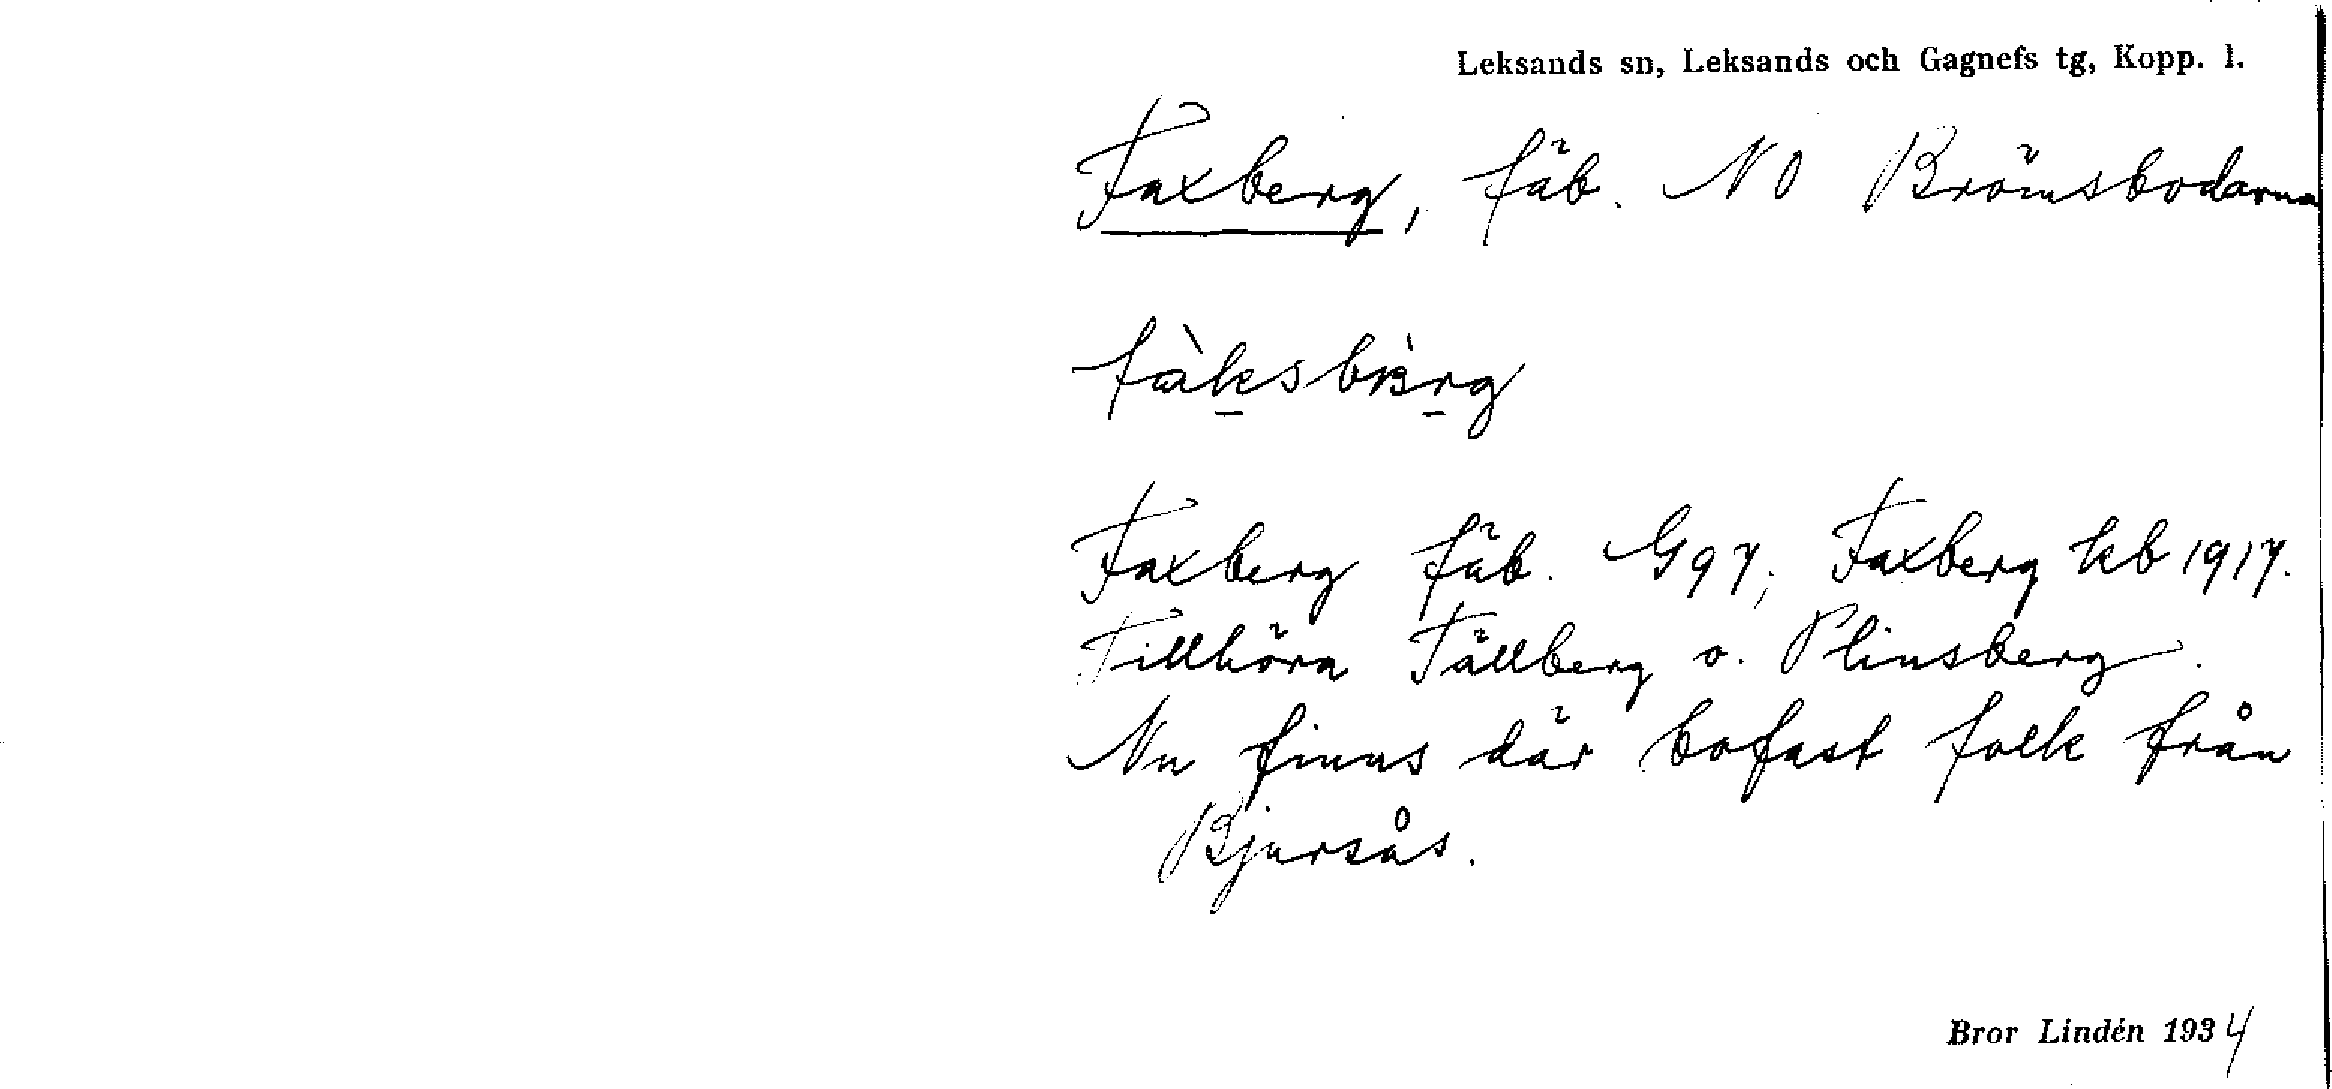 Leksands sn, Leksands och Gagnefs tg, Kopp. l.
Faxberg, fäb. NO Brömsbodarna
Faxberg fäb. G97; Faxberg kb 1917.
Tillhöra Tällberg o. Plinsberg.
Nu finns där bofast folk från
Bjursås.
Bror Lindén 1934